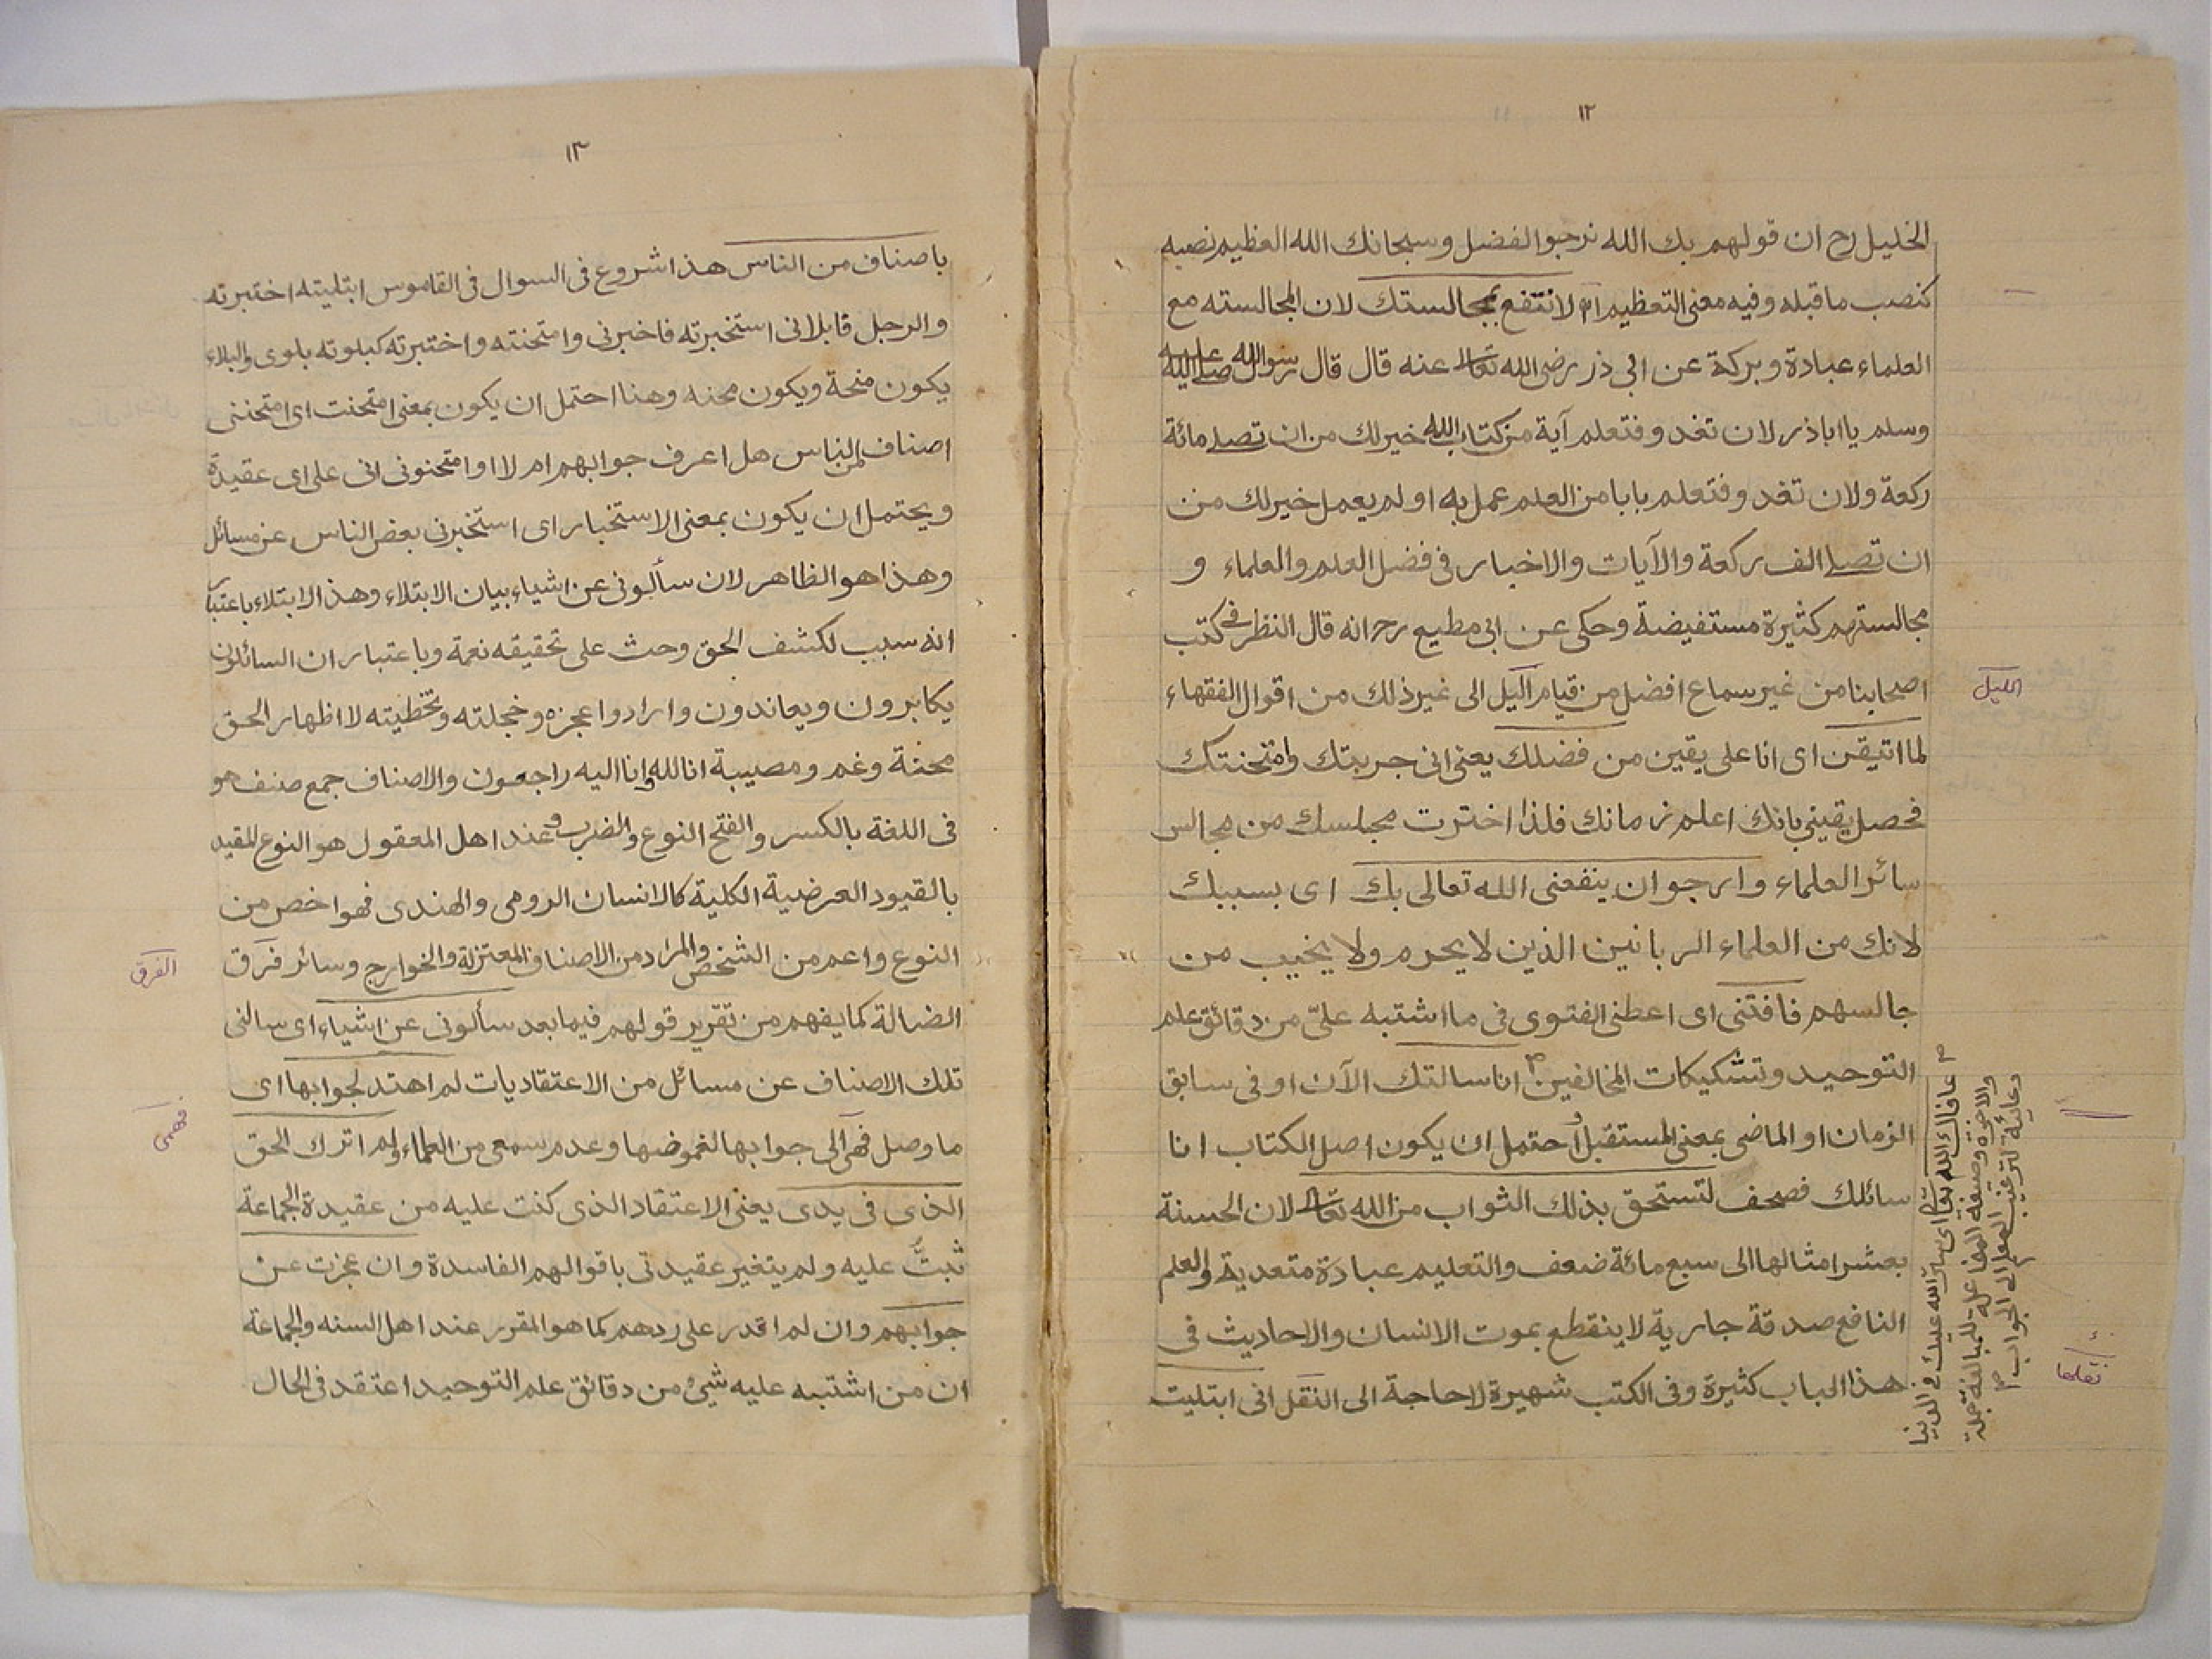 ١٢
الخليل رح ان قولهم بك الله نرجو الفضل وسبحانك الله العظيم نصبه
كنصب ما قبله وفيه معنى التعظيم لانتفع بمجالستك لان المجالسته مع
العلماء عبادة وبركة عن ابى ذر رضى الله تعالى عنه قال قال رسول الله صلى الله عليه
وسلم يا اباذر لان تغدو فتعلم آية من كتاب الله خير لك من ان تصلے مائة
ركعة ولان تغدو فتعلم بابا من العلم عمل به او لم يعمل خير لك من
ان تصلے الف ركعة والآيات والاخبار فى فضل العلم والعلماء و
مجالستهم كثيرة مستفيضة وحكى عن ابى مطيع رح انه قال النظر فى كتب
اصحابنا من غير سماع افضل من قيام اليل الى غير ذلك من اقوال الفقهاء
الليل
لما اتيقن اى انا على يقين من فضلك يعنى انى جربتك وامتحنتك
فحصل يقينى بانك اعلم زمانك فلذا اخترت مجلسك من مجالس
سائر العلماء وارجو ان ينفعنى الله تعالى بك اى بسببك
لانك من العلماء الربانين الذين لا يحرم ولا يخيب من
جالسهم فافتنى اى اعطنى الفتوى فى ما اشتبه علىّ من دقائق علم
التوحيد وتشكيكات المخالفين ٢ انا سالتك الآن او فى سابق
الزمان او الماضى بمعنى المستقبل واحتمل ان يكون اصل الكتاب انا
سائلك فصحف لتستحق بذلك الثواب من الله تعالى لان الحسنة
بعشر امثالها الى سبع مائة ضعف والتعليم عبادة متعدية والعلم
النافع صدقة جارية لا ينقطع بموت الانسان والاحاديث فى
هذا الباب كثيرة وفى الكتب شهيرة لا حاجة الى النقل انى ابتليت
نقلها
٢ عافاك الله تعالى اى ستر الله عليك فى الدنيا
والآخرة وصيغة المفاعلة للمبالغة جملة
دعائية لترغيب المعلم الى الجواب
١٣
باصناف من الناس هذا شروع فى السوال فى القاموس ابتليته اختبرته
والرجل قابلانى استخبرته فاخبرنى وامتحنته واختبرته كبلوته بلوى والبلاء
يكون منحة ويكون محنه وهنا احتمل ان يكون بمعنى امتحنت اى امتحننى
اصناف من الناس هل اعرف جوابهم ام لا او امتحنونى انى على اى عقيدة
ويحتمل ان يكون بمعنى الاستخبار اى استخبرنى بعض الناس عن مسائل
وهذا هو الظاهر لان سألونى عن اشياء بيان الابتلاء وهذ الابتلاء باعتبار
انه سبب لكشف الحق وحث على تحقيقه نعمة وباعتبار ان السائلون
يكابرون ويعاندون وارادوا عجزه وخجلته وتخطيته لا اظهار الحق
محنة وغم ومصيبة انا لله وانا اليه راجعون والاصناف جمع صنف هو
فى اللغة بالكسر والفتح النوع والضرب وعند اهل المعقول هو النوع المقيد
بالقيود العرضية الكلية كالانسان الرومى والهندى فهو اخص من
النوع واعم من الشخص والمراد من الاصناف المعتزلة والخوارج وسائر فرق
الفرق
الضالة كما يفهم من تقرير قولهم فيما بعد سألونى عن اشياء اى سالنى
تلك الاصناف عن مسائل من الاعتقاديات لم اهتد لجوابها اى
ما وصل فهمى الى جوابها لغموضها وعدم سمعى من العلماء ولم اترك الحق
فهمى
الذى فى يدى يعنى الاعتقاد الذى كنت عليه من عقيدة الجماعة
ثبتُّ عليه ولم يتغير عقيدتى باقوالهم الفاسدة وان عجزت عن
جوابهم وان لم اقدر على ردهم كما هو المقرر عند اهل السنه والجماعة
ان من اشتبه عليه شئ من دقائق علم التوحيد اعتقد فى الحال